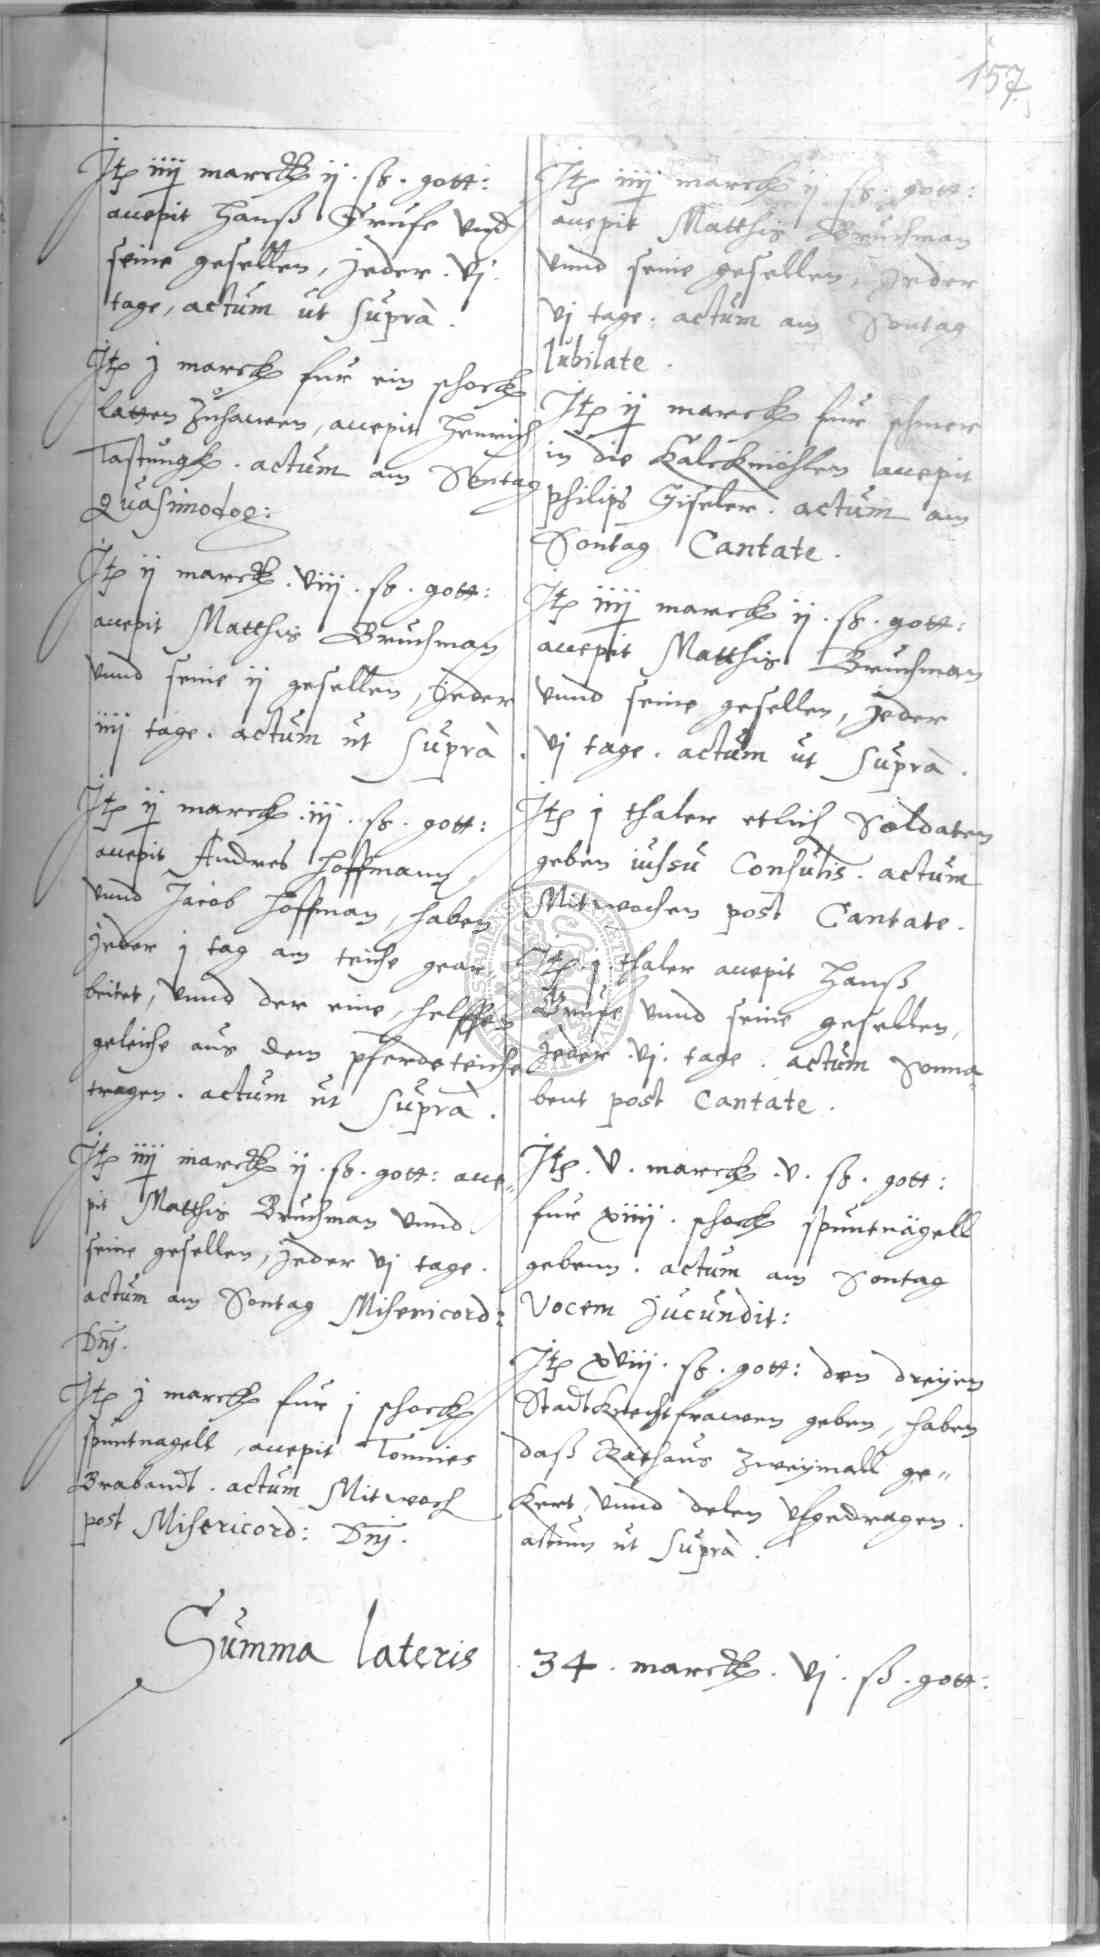 157
Itz iiij marck ij. ß. gott:
accepit Hanß Grufe vnd
seine gesellen, jeder. vj.
tage, actum ut supra.
Itz j marck fur ein schock
latten Zuhawen, accepit Henrich
Tastungk. actum am Sontag
Quasimodog:
Itz ij marck. viij. ß. gott:
accepit Matthis Bruchman
vnnd seine ij gesellen, jeder
iiij tage. actum ut supra.
Itz ij marck. iij. ß. gott:
accepit Andres Hoffmann,
vnnd Jacob Hoffman, haben
jeder j tag am teiche gear
beitet, vnnd der eine, helffen
geleiche aus dem pferdeteiche
tragen. actum ut supra.
Itz iiij marck ij. ß. gott: acce„
pit Matthis Bruchman vnnd
seine gesellen, jeder vj tage.
actum am Sontag Misericord:
Dnj.
Itz j marck fur j schock
spuntnagell, accepit Tonnies
Brabandt. actum Mitwoch
post Misericord: Dnj.
Itz iiij marck ij ß. gott:
accepit Matthis Bruchman
vnnd seine gesellen, jeder
vj tage. actum am Sontag
Iubilate.
Itz ij marck fur schmer
in die Kalckmöhlen accepit
philips Giseler. actum am
Sontag Cantate.
Itz iiij marck ij. ß. gott:
accepit Matthis Bruchman
vnnd seine gesellen, jeder
vj tage. actum ut supra.
Itz j thaler etlich Soldaten
geben iussu Consulis. actum
Mitwochen post Cantate.
Itz j thaler accepit Hanß
Grufe vnnd seine gesellen,
jeder. vj. tage. actum Sonna„
bent post Cantate.
Itz. v. marck. v. ß. gott:
fur xiiij. schock spuntnägell
gebenn. actum am Sontag
Vocem jucundit:
Itz xviij. ß. gott: den dreyen
Stadtknecht frawen geben, haben
daß Rathaus Zweymall ge„
kert, vnnd delen vfgedragen.
actum ut supra.
Summa lateris 34. marck. vj. ß. gott: